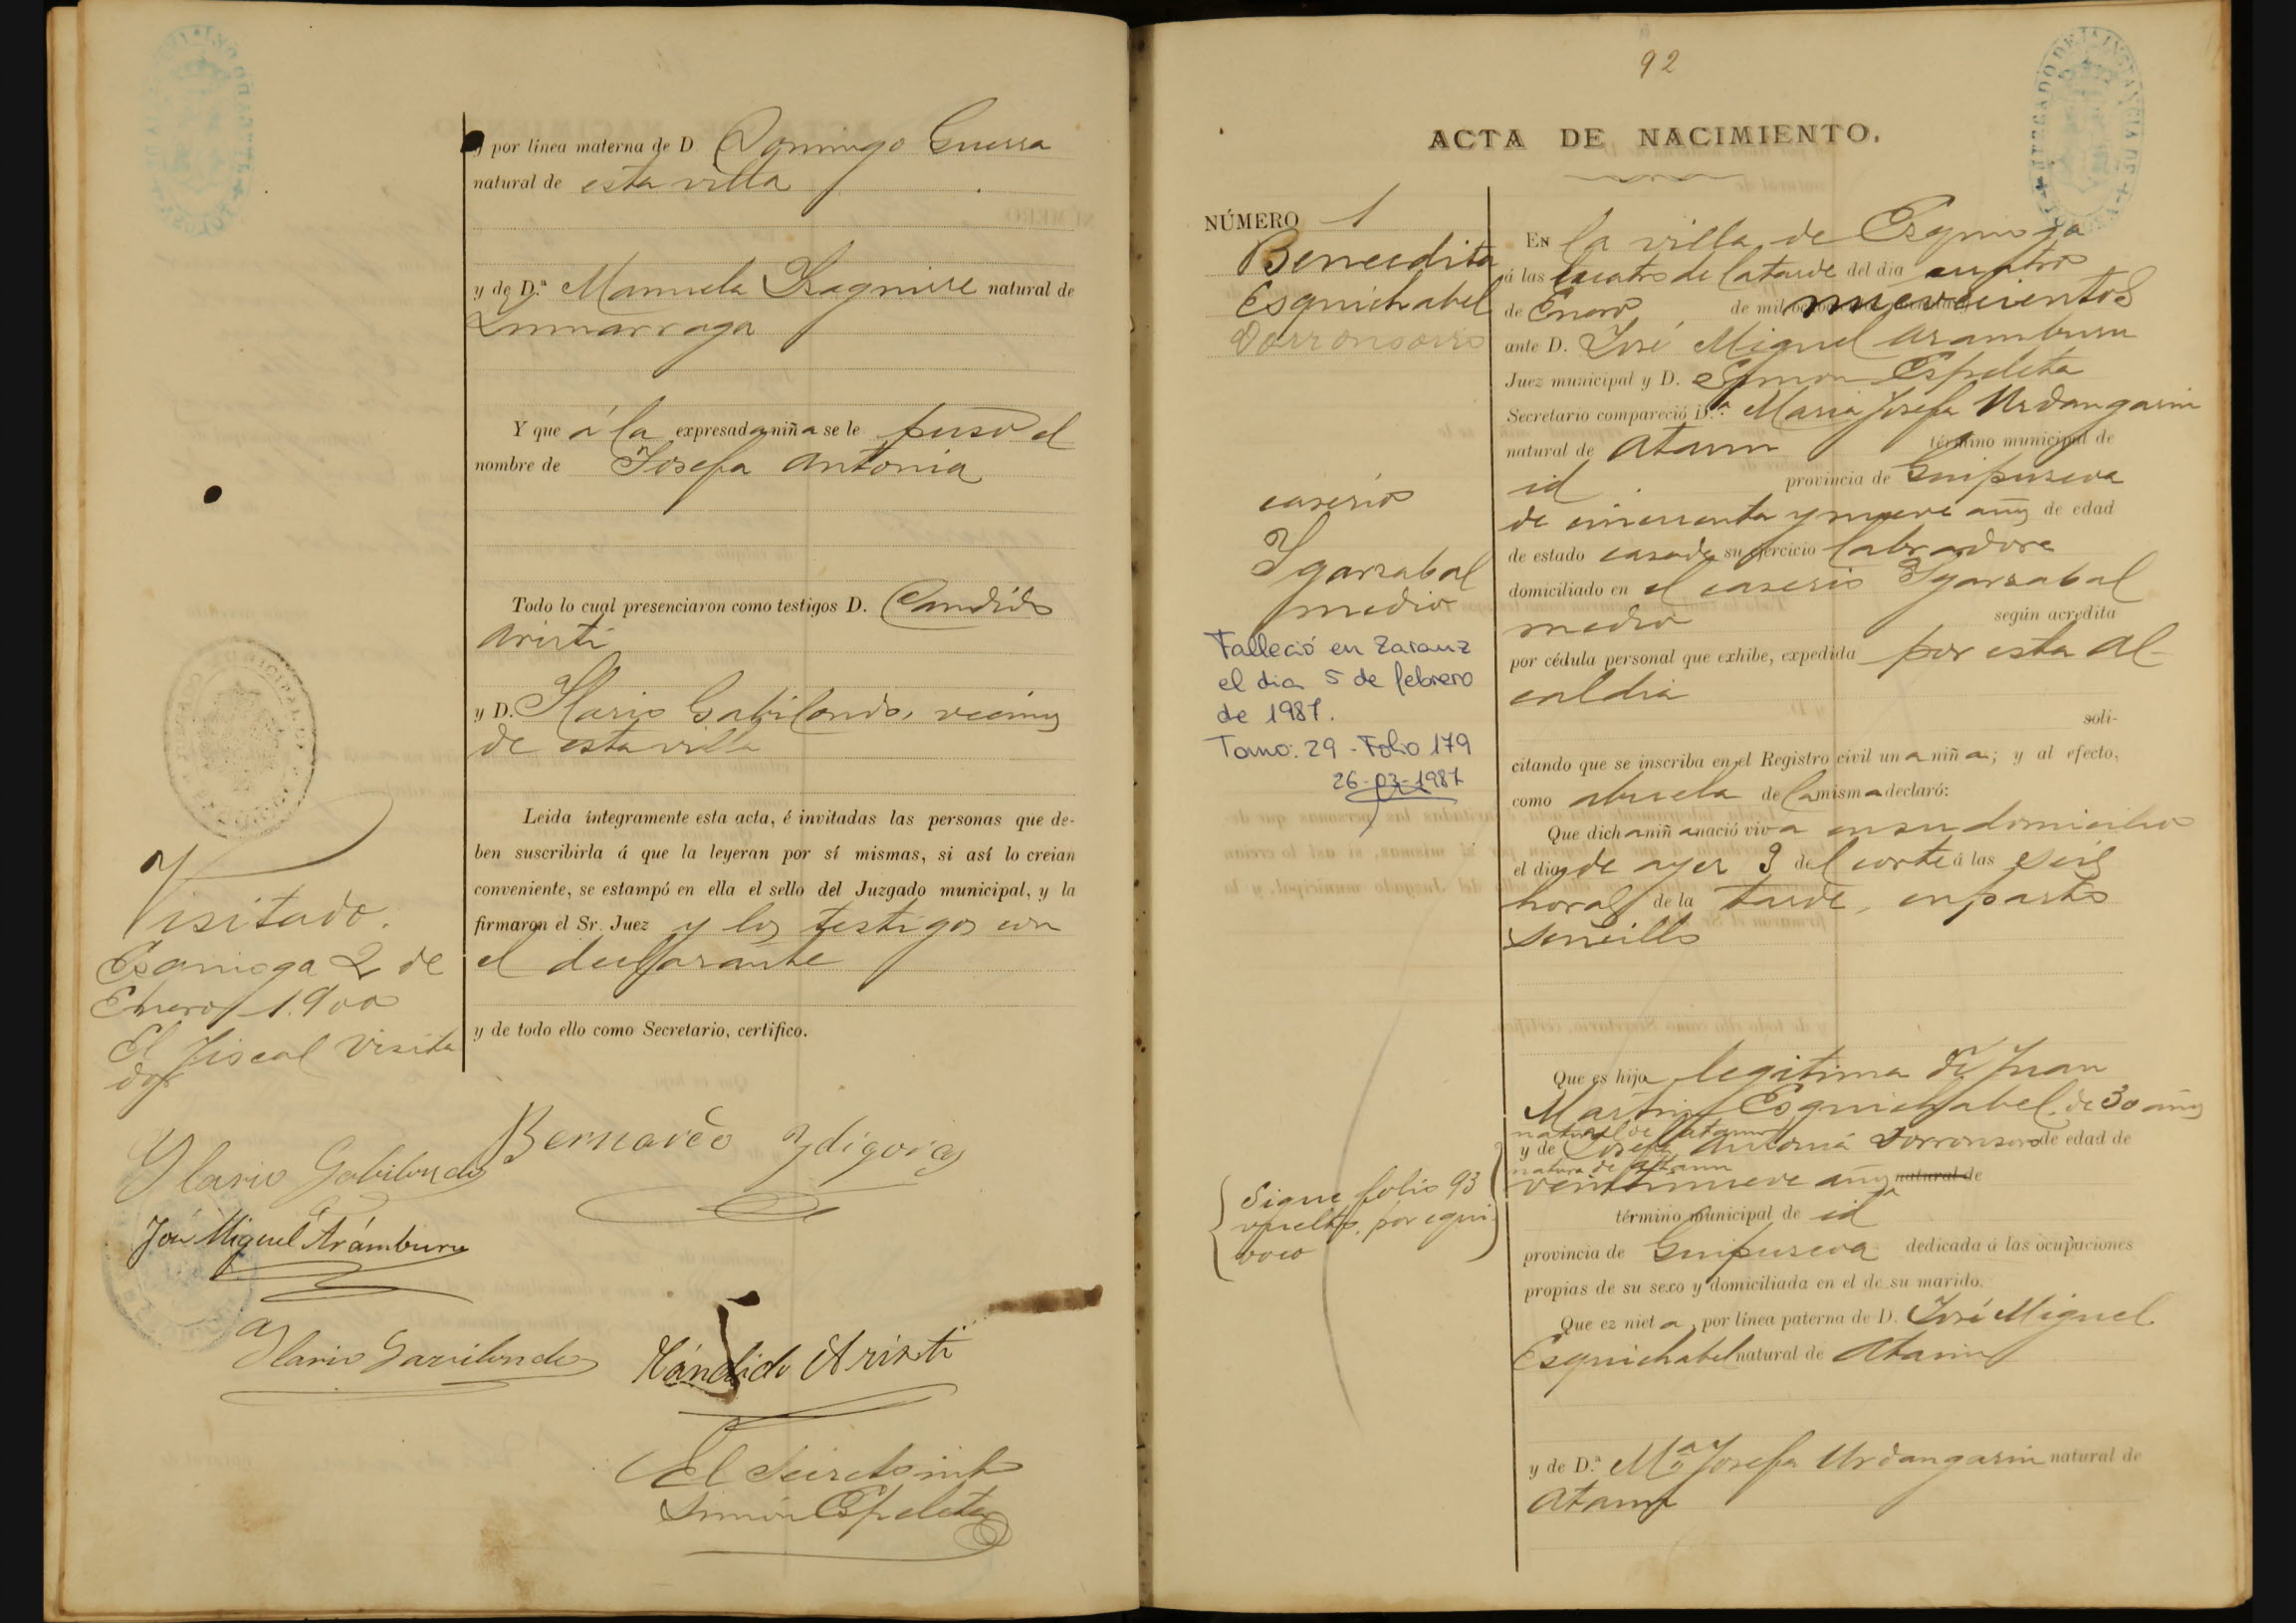 y por línea materna de D Domingo Guerra
natural de esta villa
y de D.ª Manuela Ysaguirre natural de
Zumarraga
Y que á la expresada niña se le puso el
nombre de Josefa Antonia
Todo lo cual presenciaron como testigos D. Candido
Aristi
y D. Ylario Gabilondo, vecinos
de esta villa
Leida íntegramente esta acta, é invitadas las personas que de-
ben suscribirla á que la leyeran por sí mismas, si así lo creian
conveniente, se estampó en ella el sello del Juzgado municipal, y la
firmaron el Sr. Juez y los testigos con
el declarante
y de todo ello como Secretario, certifico.
Visitado.
Ezquioga 2 de
Enero 1.900
El Fiscal Visita
dor
Bernardo Ydigoras
Ylario Gabilondo
José Miguel Arámburu
Ylario Gavilondo
Cándido Aristi
El Secreto
Simón Espeleta
92
ACTA DE NACIMIENTO.
NÚMERO 1
Benecdita
Esquichabel
Dorronsorro
caserío
Ygarzabal
medio
Falleció en Zarauz
el dia 5 de febrero
de 1987.
Tomo: 29 - Folio 179
26-03-1987
Sigue folio 93
vuelto, por equi
voco
En la villa de Ezquioga
á las cuatro de la tarde del día cuatro
de Enero de mil novecientos
ante D. José Miguel Aramburu
Juez municipal y D. Simon Espeleta
Secretario compareció D.ª Maria Josefa Urdangarin
natural de Ataun término municipal de
id provincia de Guipuscoa
de cincuenta y nueve años de edad
de estado casada su ejercicio labradora
domiciliado en el caserio Ygarzabal
medio según acredita
por cédula personal que exhibe, expedida por esta Al-
caldia
soli-
citando que se inscriba en el Registro civil una niña; y al efecto,
como abuela de la misma declaró:
Que dicha niña nació viva en su domicilio
el dia de ayer 3 del corte á las seis
horas de la tarde, en parto
sencillo
Que es hija legitima de Juan
Martin Esquichabel de 30 años
natural de Ataun
y de Josefa Antonia Dorronsoro de edad de
natural de Ataun
veintinueve años natural de
término municipal de id
provincia de Guipuscoa dedicada á las ocupaciones
propias de su sexo y domiciliada en el de su marido.
Que ez nieta, por línea paterna de D. José Miguel
Esquichabel natural de Ataun
y de D.ª Mª Josefa Urdangarin natural de
Ataun